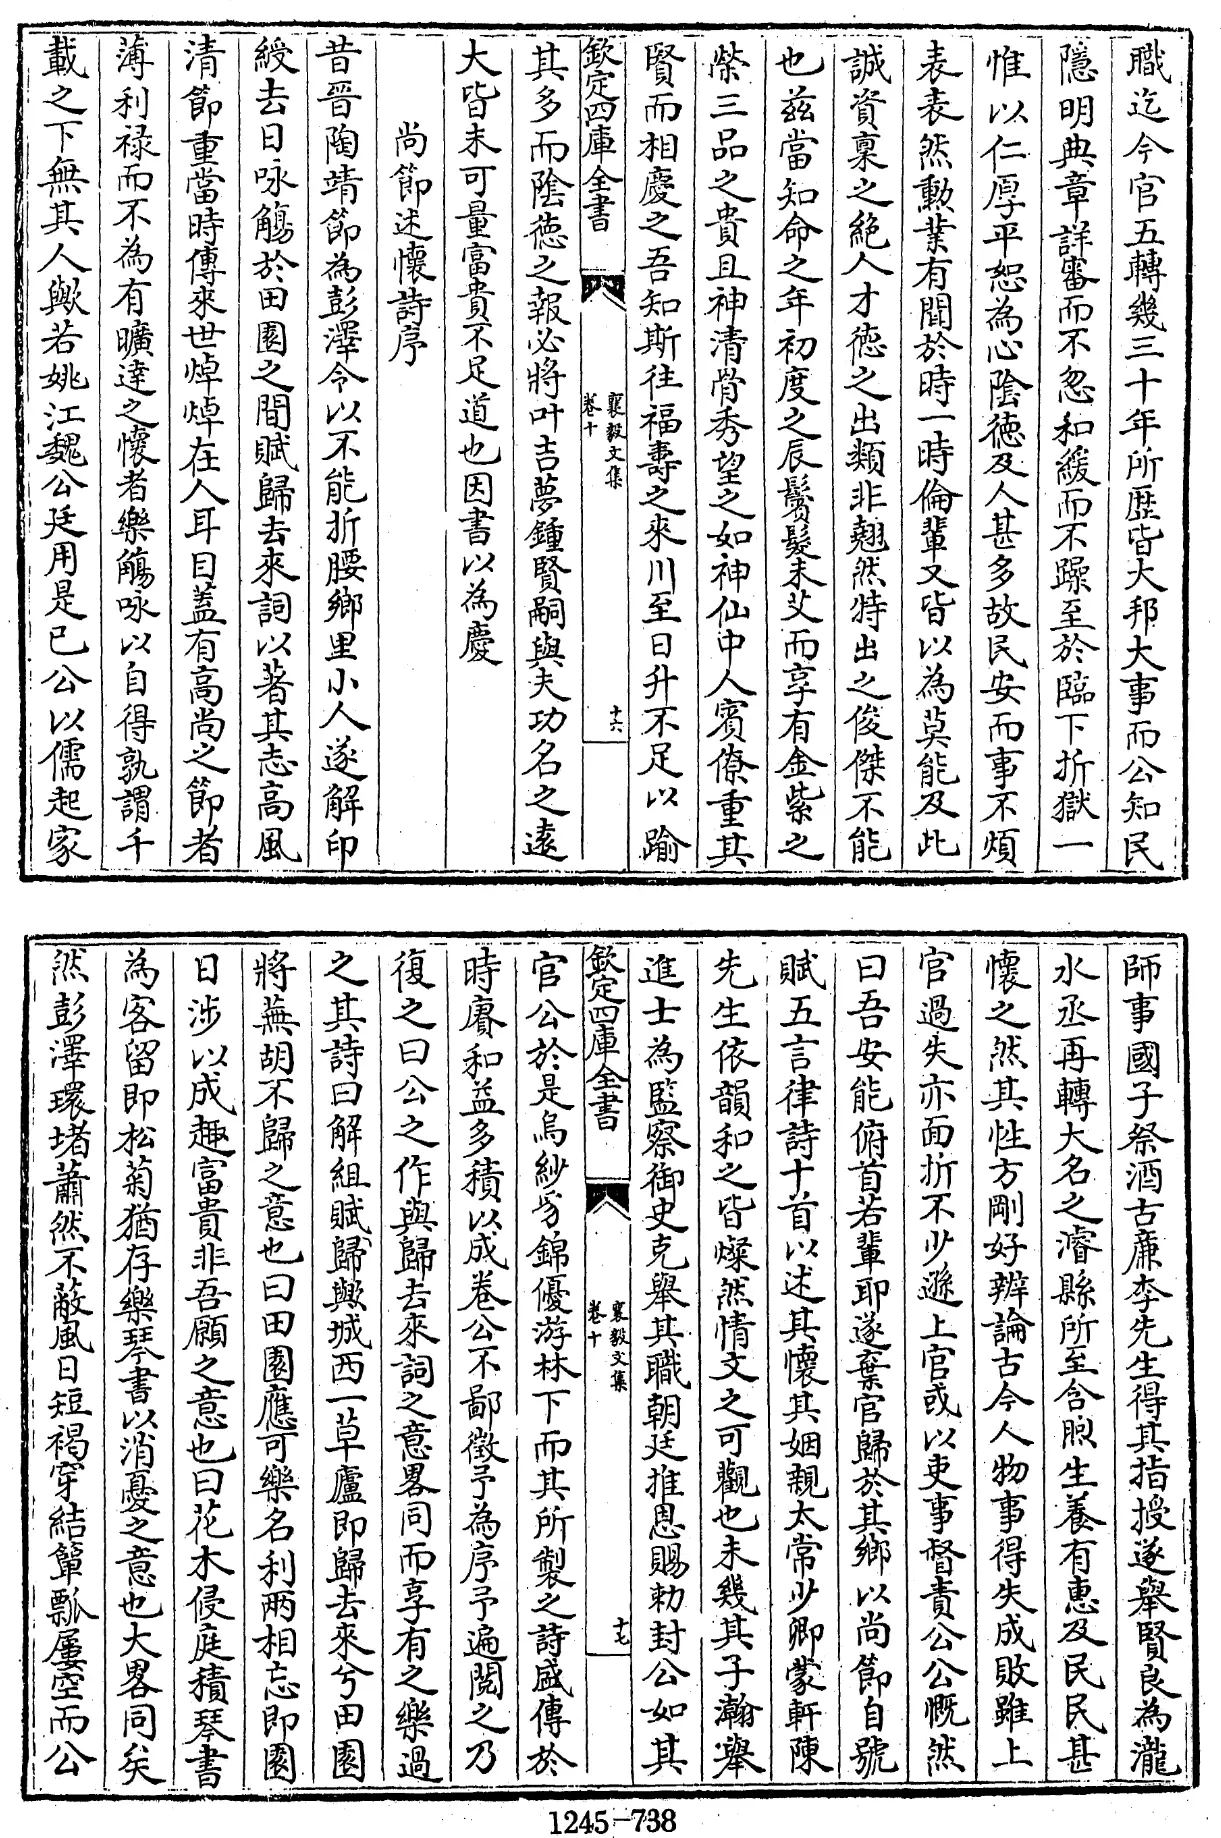 職迄今官五轉幾三十年所歴皆大邦大事而公知民
隱明典章詳審而不忽和緩而不躁至於臨下折獄一
惟以仁厚平恕為心陰徳及人甚多故民安而事不煩
表表然勲業有聞於時一時倫輩又皆以為莫能及此
誠資稟之絶人才徳之出類非翹然特出之俊傑不能
也兹當知命之年初度之辰鬢髪未艾而享有金紫之
榮三品之貴且神清骨秀望之如神仙中人賓僚重其
賢而相慶之吾知斯往福壽之來川至日升不足以踰
欽定四庫全書
襄毅文集
卷十
十六
其多而陰徳之報必將叶吉夢鍾賢嗣與夫功名之遠
大皆未可量富貴不足道也因書以為慶
尚節述懷詩序
昔晉陶靖節為彭澤令以不能折腰鄉里小人遂解印
綬去日咏觴於田園之間賦歸去來詞以著其志高風
清節重當時傳來世焯焯在人耳目蓋有高尚之節者
薄利禄而不為有曠達之懷者樂觴咏以自得孰謂千
載之下無其人歟若姚江魏公廷用是已公以儒起家
師事國子祭酒古廉李先生得其指授遂舉賢良為瀧
水丞再轉大名之濬縣所至含煦生養有惠及民民甚
懷之然其性方剛好辨論古今人物事得失成敗雖上
官過失亦面折不少遜上官或以吏事督責公公慨然
曰吾安能俯首若輩耶遂棄官歸於其鄉以尚節自號
賦五言律詩十首以述其懷其姻親太常少卿蒙軒陳
先生依韻和之皆燦然情文之可觀也未幾其子瀚舉
進士為監察御史克舉其職朝廷推恩賜勅封公如其
欽定四庫全書
襄毅文集
卷十
十七
官公於是烏紗豸錦優游林下而其所製之詩盛傳於
時賡和益多積以成卷公不鄙徵予為序予遍閲之乃
復之曰公之作與歸去來詞之意畧同而享有之樂過
之其詩曰解組賦歸輿城西一草廬即歸去來兮田園
將蕪胡不歸之意也曰田園應可樂名利兩相忘即園
日渉以成趣富貴非吾願之意也曰花木侵庭積琴書
為客留即松菊猶存樂琴書以消憂之意也大畧同矣
然彭澤環堵蕭然不蔽風日短褐穿結簞瓢屢空而公
1245-738